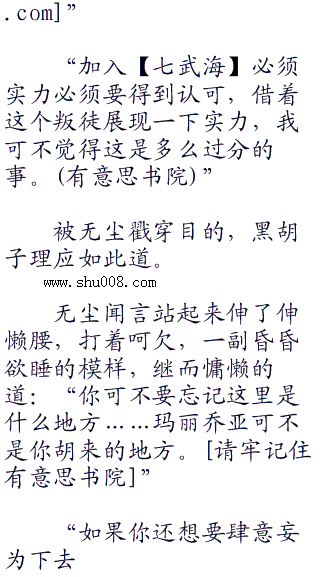 .com]”
“加入【七武海】必须
实力必须要得到认可，借着
这个叛徒展现一下实力，我
可不觉得这是多么过分的
事。(有意思书院)”
被无尘戳穿目的，黑胡
子理应如此道。
www.shu008.com
无尘闻言站起来伸了伸
懒腰，打着呵欠，一副昏昏
欲睡的模样，继而慵懒的
道：“你可不要忘记这里是
什么地方……玛丽乔亚可不
是你胡来的地方。[请牢记住
有意思书院]”
“如果你还想要肆意妄
为下去